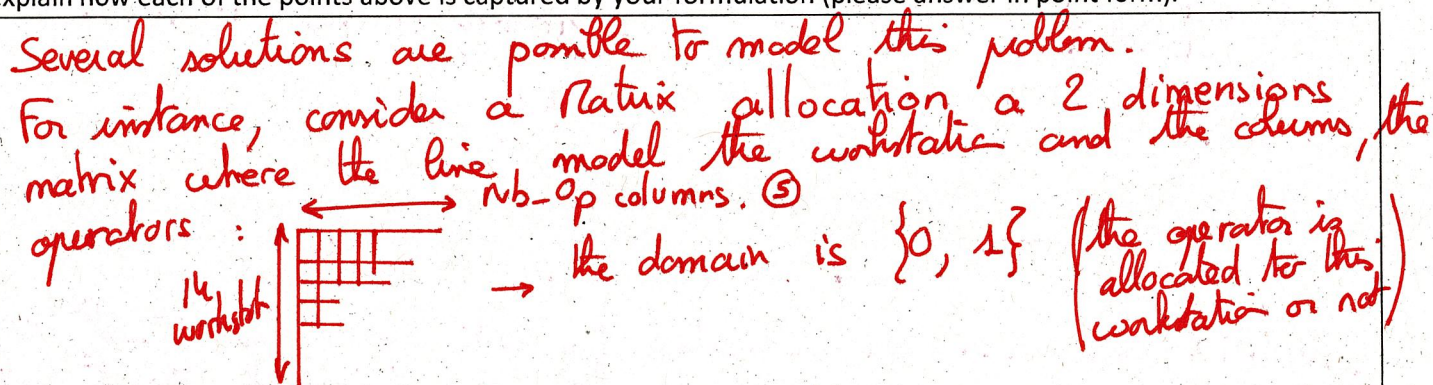 explain how each of the points above is captured by your formulation (please answer in point form).
Several solutions are possible to model this problem.
For instance, consider a Matrix allocation a 2 dimensions
matrix where the line model the workstatio and the colums, the
operators :
Nb_Op columns. (5)
14 workstat
→ the domain is {0, 1} (the operator is
allocated to this
workstation or not)